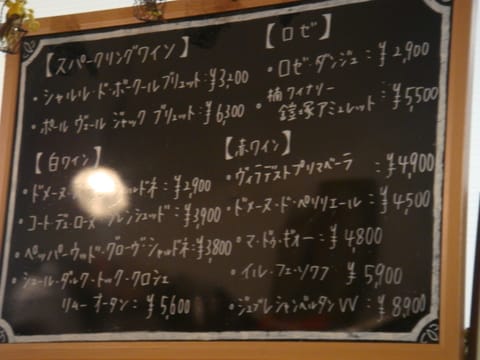 【スパークリングワイン】
・シャルル・ド・ボークールブリュット:¥3,200
・ポール ヴェール ジャック ブリュット:¥6,300
【ロゼ】
・ロゼ・ダンジュ:¥2,900
・楠ワイナリー
鎧塚アミュレット:¥5,500
【白ワイン】
・ドメーヌ・ ルドネ:¥2,900
・コート・デュ・ローヌ :¥3,900
・ペッパーウッド・グローヴ・シャルドネ:¥3,800
・シェール・ダルク・トック・クロシェ
リムー オータン:¥5,600
【赤ワイン】
・ヴィラデストプリマベーラ :¥4,900
・ドメーヌ・ド・ペリリエール:¥4,500
・マ・ドゥ・ギオー:¥4,800
・イル・フェ・ソワフ ¥5,900
・ジュブレシャンベルタンVV:¥8,900